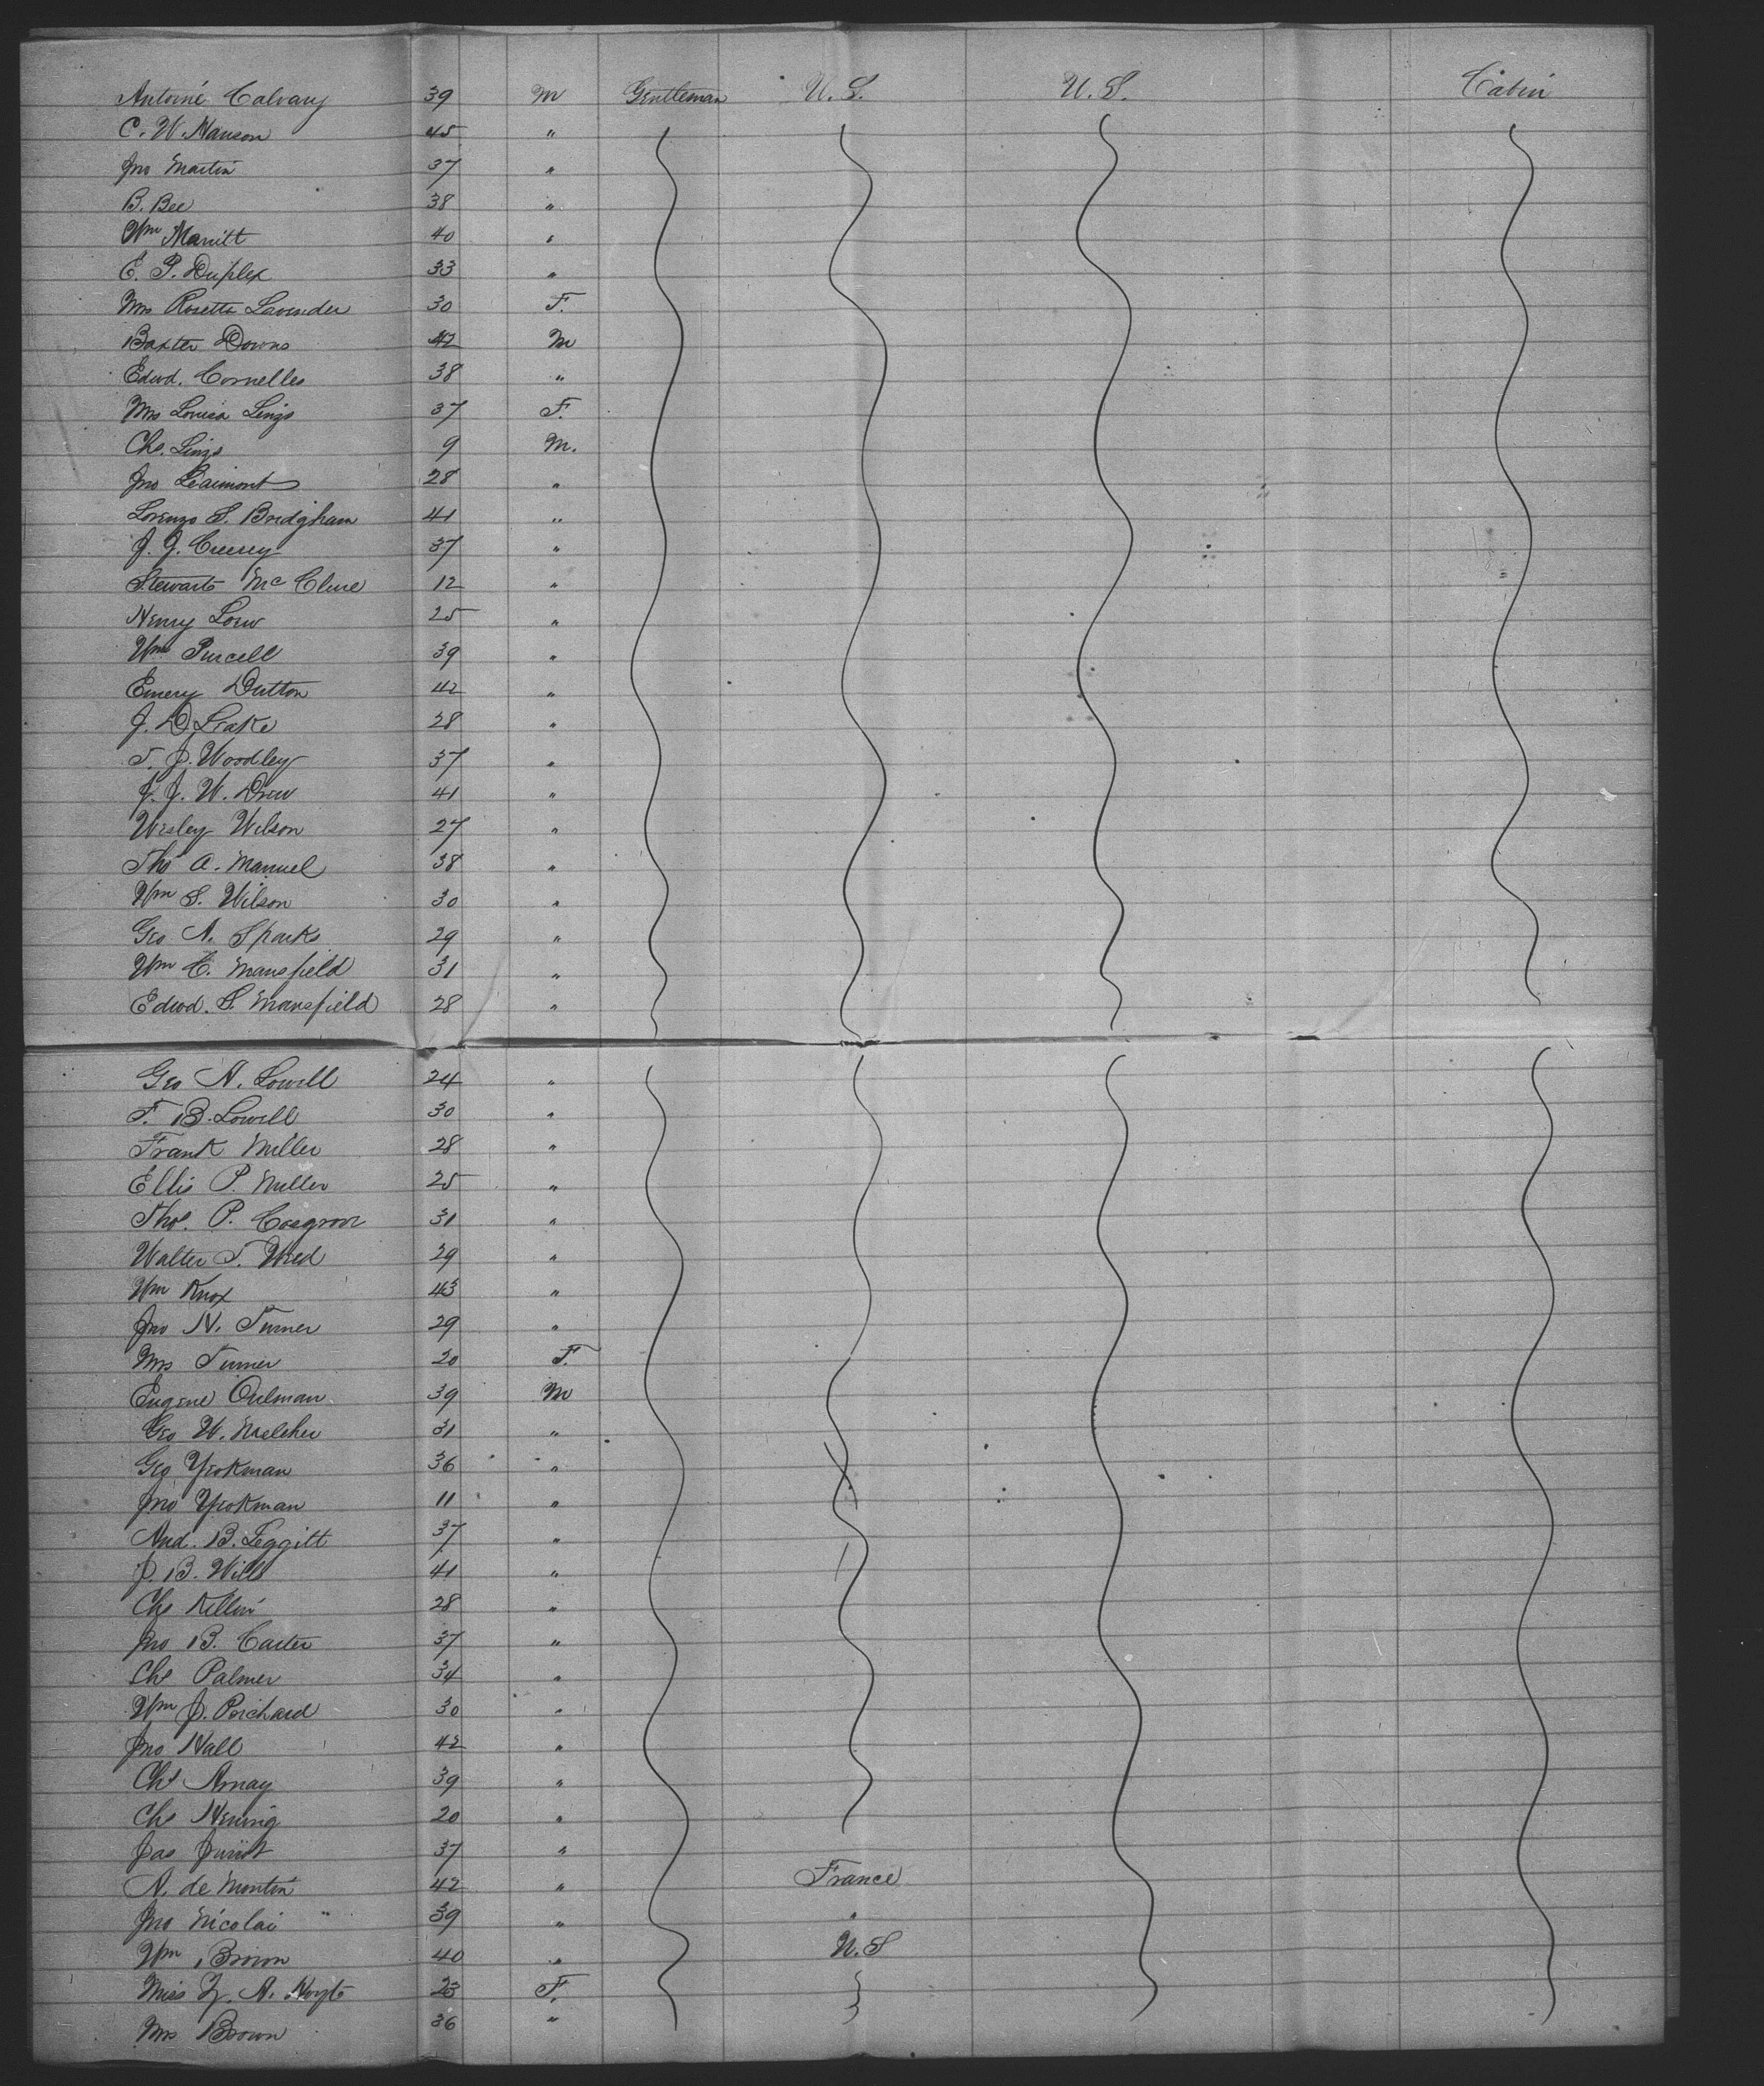 Antoiné Calvary 39 M Gentleman U.S. U.S. Cabin
C. W. Hanson 45 "
Jno Martin 37 "
B. Bee 38 "
Wm Marritt 40 "
E. P. Duplex 33 "
Mrs Rosetta Lavender 30 F.
Baxter Downs 42 M
Edwd. Cornelles 38 "
Mrs Louisa Lings 37 F.
Chs. Lings 9 M.
Jno Leaimont 28 "
Lorenzo S. Bridgham 41 "
J. J. Creesey 37 "
Stewart McClure 12 "
Henry Low 25 "
Wm Purcell 39 "
Emery Dutton 42 "
J. D Leake 28 "
T. J. Woodley 37 "
J. J. W. Drew 41 "
Wesley Wilson 27 "
Thos A. Manuel 38 "
Wm S. Wilson 30 "
Geo. N. Sparks 29 "
Wm C. Mansfield 31 "
Edwd. S. Mansfield 28 "
Geo A. Lowell 24 "
F. B. Lowell 30 "
Frank Miller 28 "
Ellis P. Miller 25 "
Thos. P. Cosgrove 31 "
Walter T. 29 "
Wm Knox 43 "
Jno H. Turner 29 "
Mrs Turner 20 F.
Eugene Oulman 39 M
Geo W. Melcher 31 "
Geo Yeokman 36 "
Jno Yeokman 11 "
And. B. Leggitt 37 "
J. B. Wills 41 "
Chs Killin 28 "
Jno B. Carter 37 "
Chs Palmer 34 "
Wm J. Porchard 30 "
Jno Hall 42 "
Chs Amay 39 "
Chs Hennig 20 "
Jas 37 "
A. de Montin 42 " France
Jno Nicolai 39 " "
Wm Brown 40 " U.S
Miss A. Hoyt 23 F.
Mrs Brown 36 "